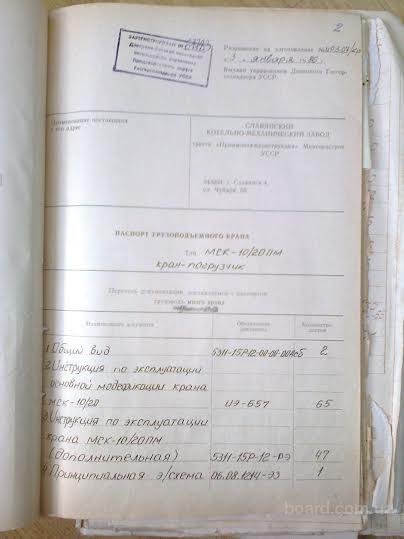 2
ЗАРЕГИСТРИРОВАН
Разрешение на изготовление №
3. января 1986 г.
Выдано управлением Донецкого Госгор-
технадзора УССР
Наименование поставщика
и его адрес
СЛАВЯНСКИЙ
КОТЕЛЬНО-МЕХАНИЧЕСКИЙ ЗАВОД
УССР
г. Славянск 4,
ул. Чубаря 88.
ПАСПОРТ ГРУЗОПОДЪЕМНОГО КРАНА
Тип МСК-10/20ПМ
кран-погрузчик
Перечень документации, поставляемой с паспортом
грузоподъемного крана
Наименование документа
Обозначение документа
Количество листов
1 Общий вид 5311-15Р-12-00-00-00Асб 2
2 Инструкция по эксплуатации
основной модефикации крана
МСК-10/20 ИЭ-657 65
3 Инструкция по эксплуатации
крана МСК-10/20ПМ
(дополнительная) 5311-15Р-12-ПЭ 47
4 Принципиальная э/схема 06.08.1214-ЭЗ 1
board.com.ua